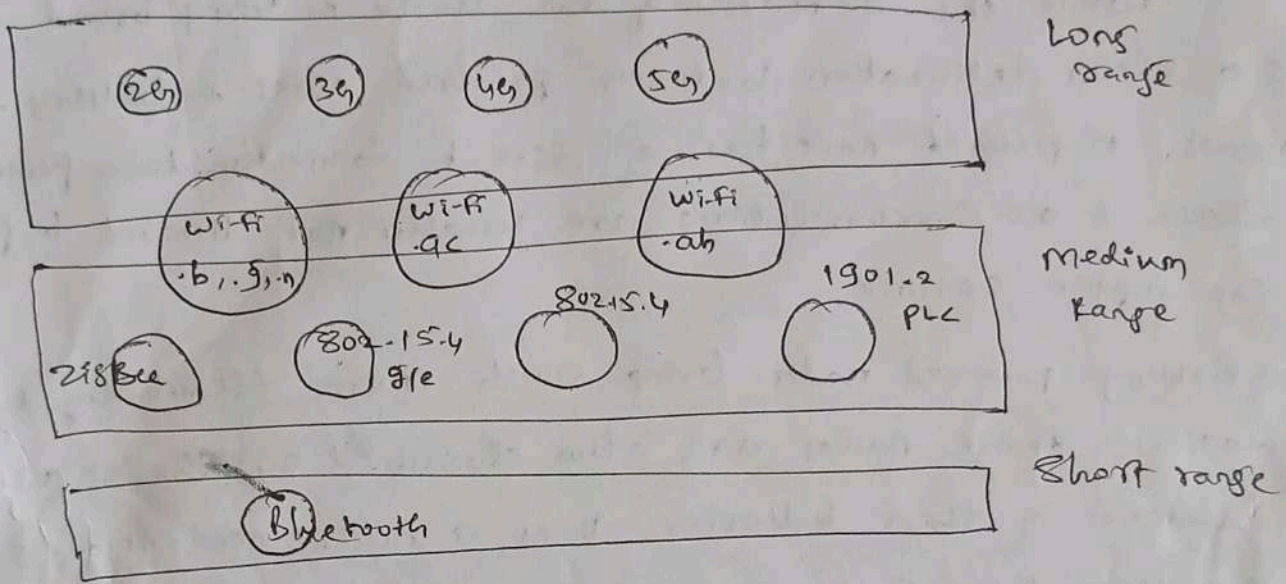 2G 3G 4G 5G
Long
range
Wi-Fi
.b, .g, .n
Wi-Fi
.ac
Wi-Fi
.ah
Medium
Range
ZigBee
802.15.4
g/e
802.15.4
1901.2
PLC
Short range
Bluetooth